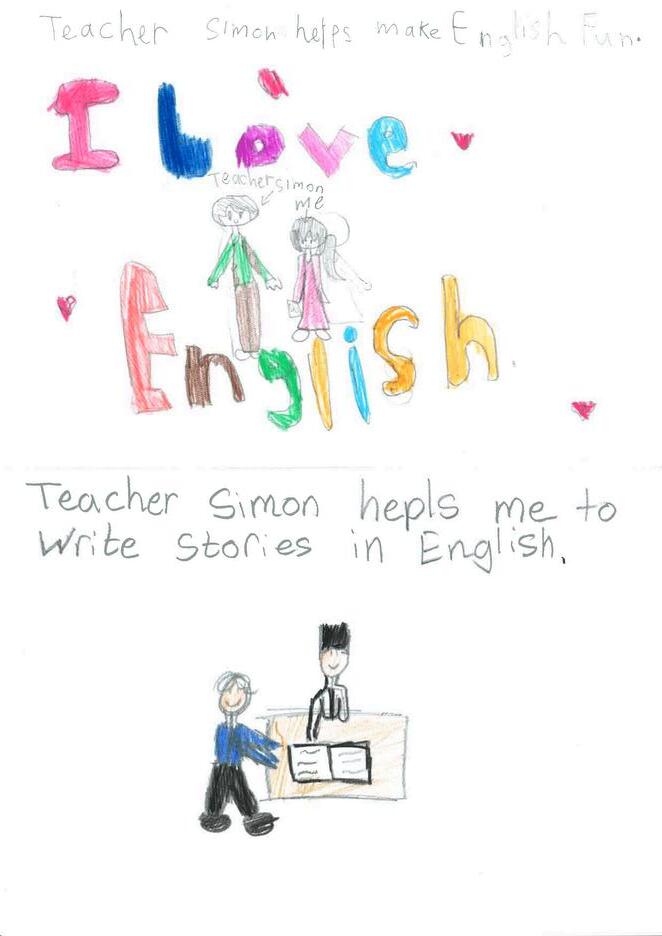 Teacher Simon helps make English Fun.
I Love
Teacher Simon
me
English
Teacher Simon hepls me to
Write Stories in English.